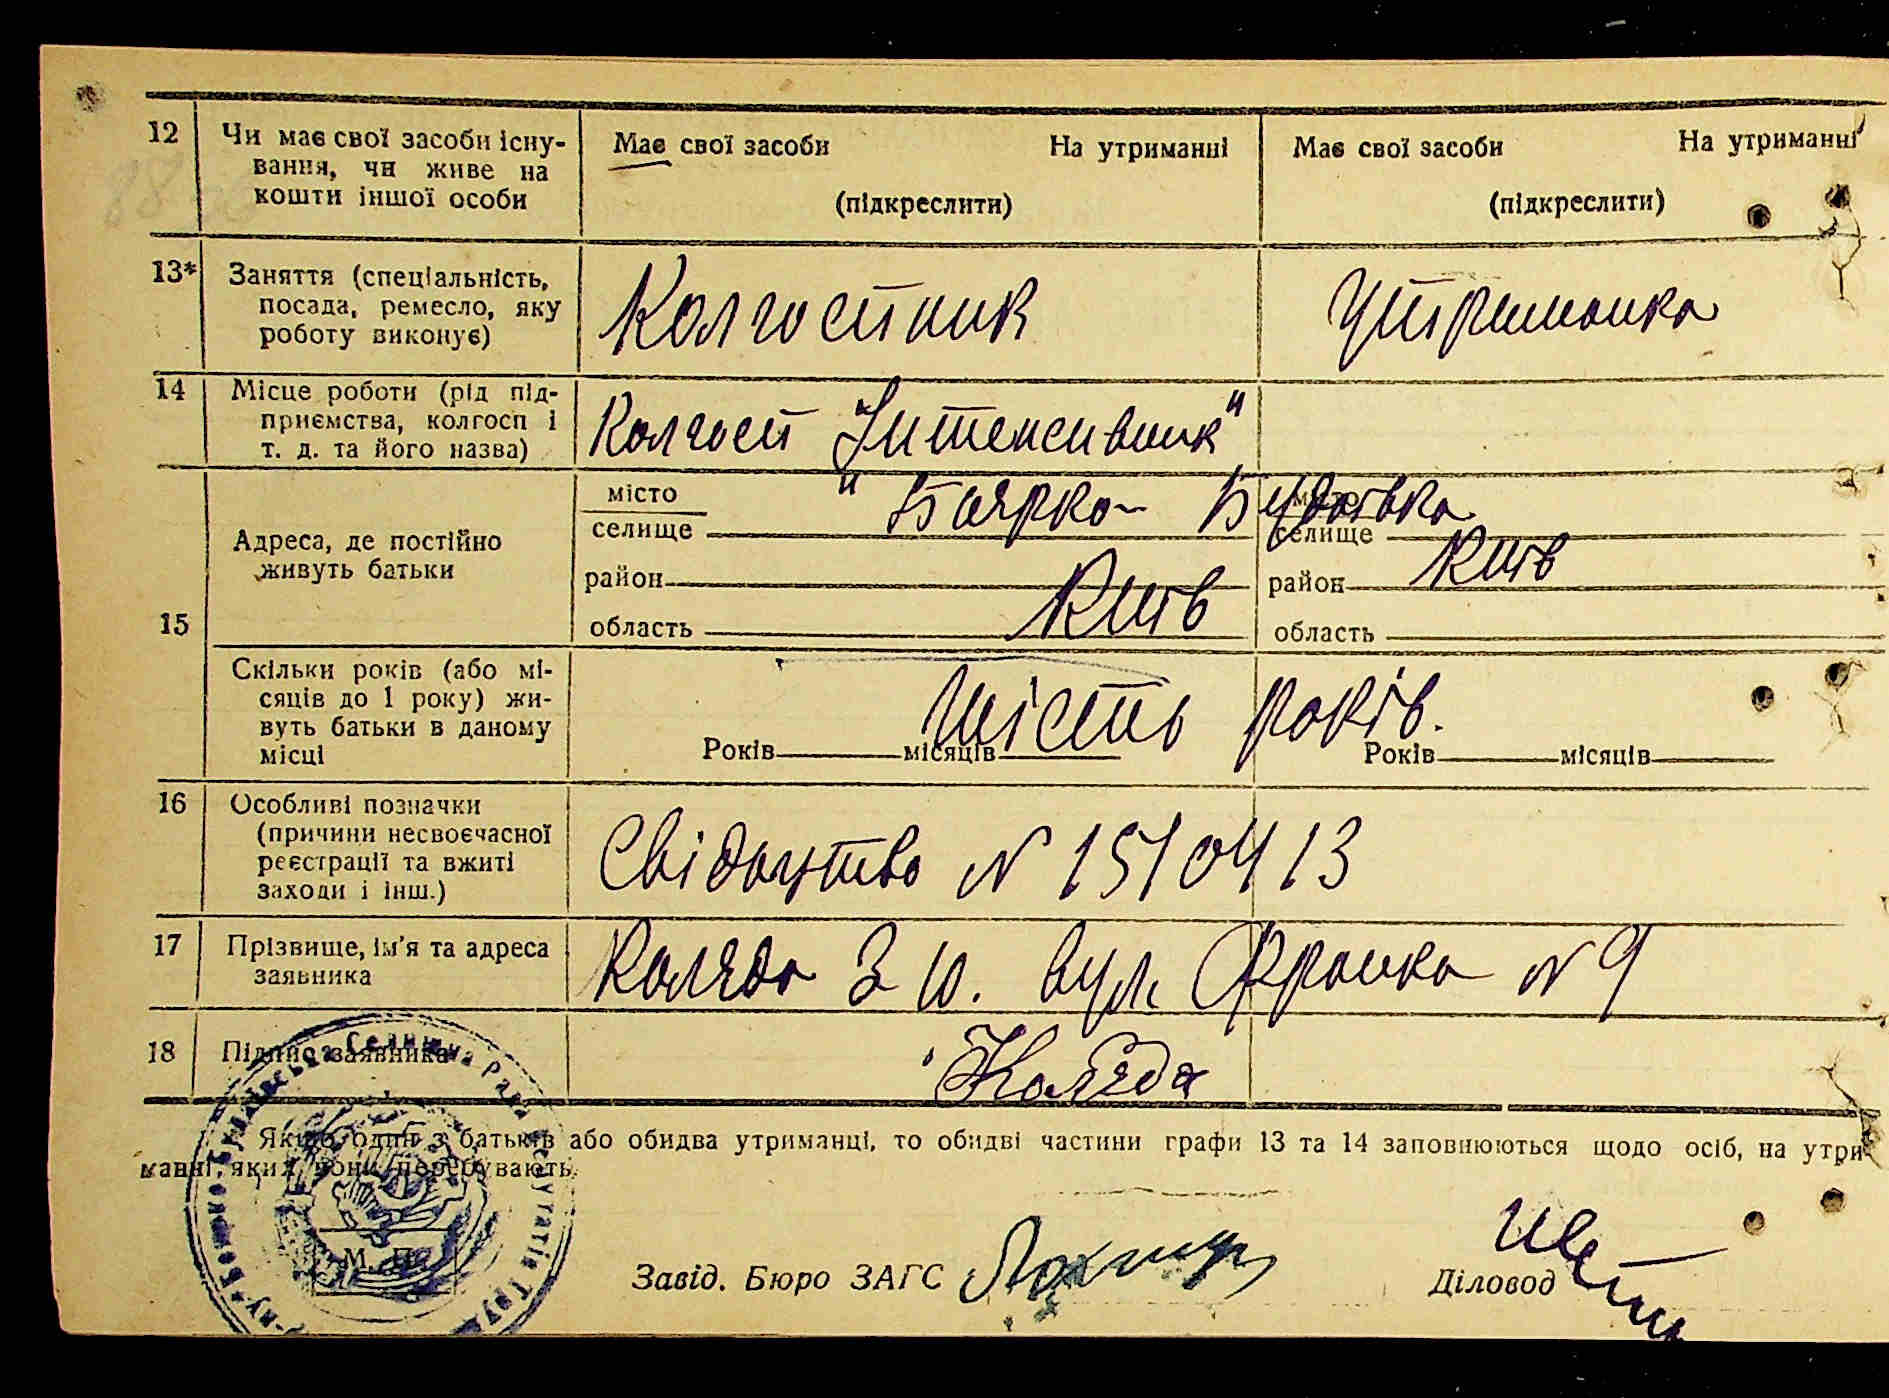 12 Чи має свої засоби існу-
вання, чи живе на
кошти іншої особи
Має свої засоби На утриманні
(підкреслити)
Має свої засоби На утриманні
(підкреслити)
13* Заняття (спеціальність,
посада, ремесло, яку
роботу виконує)
Колгоспник
Утриманка
14 Місце роботи (рід під-
приємства, колгосп і
т. д. та його назва)
Колгосп "Інтенсивник"
15
Адреса, де постійно
живуть батьки
місто
селище
" Боярка Будаївка
район
область Київ
місто
селище
район Київ
область
Скільки років (або мі-
сяців до 1 року) жи-
вуть батьки в даному
місці
Шість років.
Років місяців
Років місяців
16 Особливі позначки
(причини несвоєчасної
реєстрації та вжиті
заходи і інш.)
Свідоцтво N 1510413
17 Прізвище, ім'я та адреса
заявника
Коляда З Ю. вул. Франка N 9
18 Підпис заявника
Коляда
Якщо один з батьків або обидва утриманці, то обидві частини графи 13 та 14 заповнюються щодо осіб, на утри-
манні яких вони перебувають.
М. П.
Завід. Бюро ЗАГС
Діловод